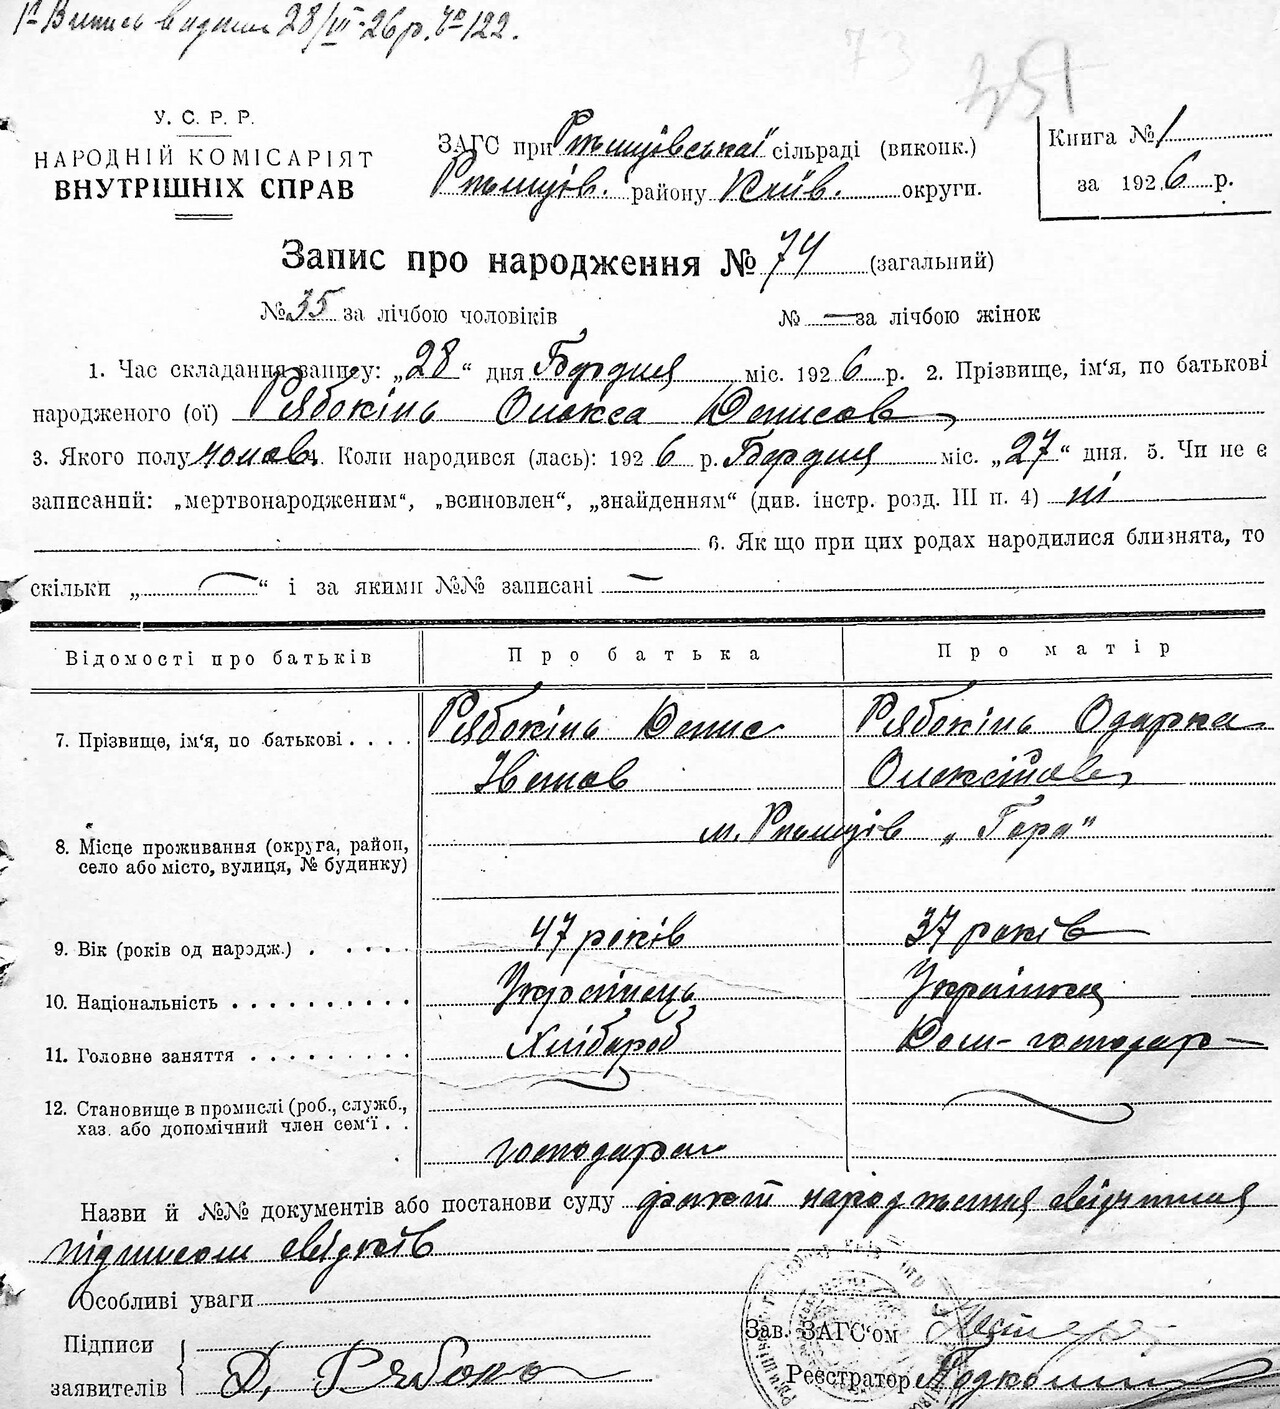 1. Випись видана 28/VI-26р. № 122.
73
351
У. С. Р. Р.
НАРОДНІЙ КОМІСАРІЯТ
ВНУТРІШНІХ СПРАВ
ЗАГС при Ржищівській сільраді (виконк.)
Ржищів. району Київ. округи.
Книга № 1
за 1926 р.
Запис про народження № 74 (загальний)
№ 35 за лічбою чоловіків № — за лічбою жінок
1. Час складання запису: „28“ дня Березня міс. 1926 р. 2. Прізвище, ім'я, по батькові
народженого (ої) Рябокінь Олекса Денисов
3. Якого полу чолов. 4. Коли народився (лась): 1926 р. Березня міс. „27“ дня. 5. Чи не є
записаний: „мертвонародженим“, „всиновлен“, „знайденям“ (див. інстр. розд. III п. 4) ні
6. Як що при цих родах народилися близнята, то
скільки „—“ і за якими №№ записані —
Відомості про батьків Про батька Про матір
7. Прізвище, ім‘я, по батькові . . . . Рябокінь Денис Рябокінь Одарка
Олексіївна
8. Місце проживання (округа, район, м. Ржищів „Гора“
село або місто, вулиця, № будинку)
9. Вік (років од народж.) . . . . . 47 років 37 років
10. Національність . . . . . . . . . . . Українець Українка
11. Головне заняття . . . . . . . . . . Хлібороб Дом-господар
12. Становище в промислі (роб., служб.,
хаз. або допомічний член сем‘ї . .
господарем
Назви й №№ документів або постанови суду факт народження свідчиния
підписом свідків
Особливі уваги
Підписи
заявителів Д. Рябоко
Зав. ЗАГС‘ом
Реєстратор